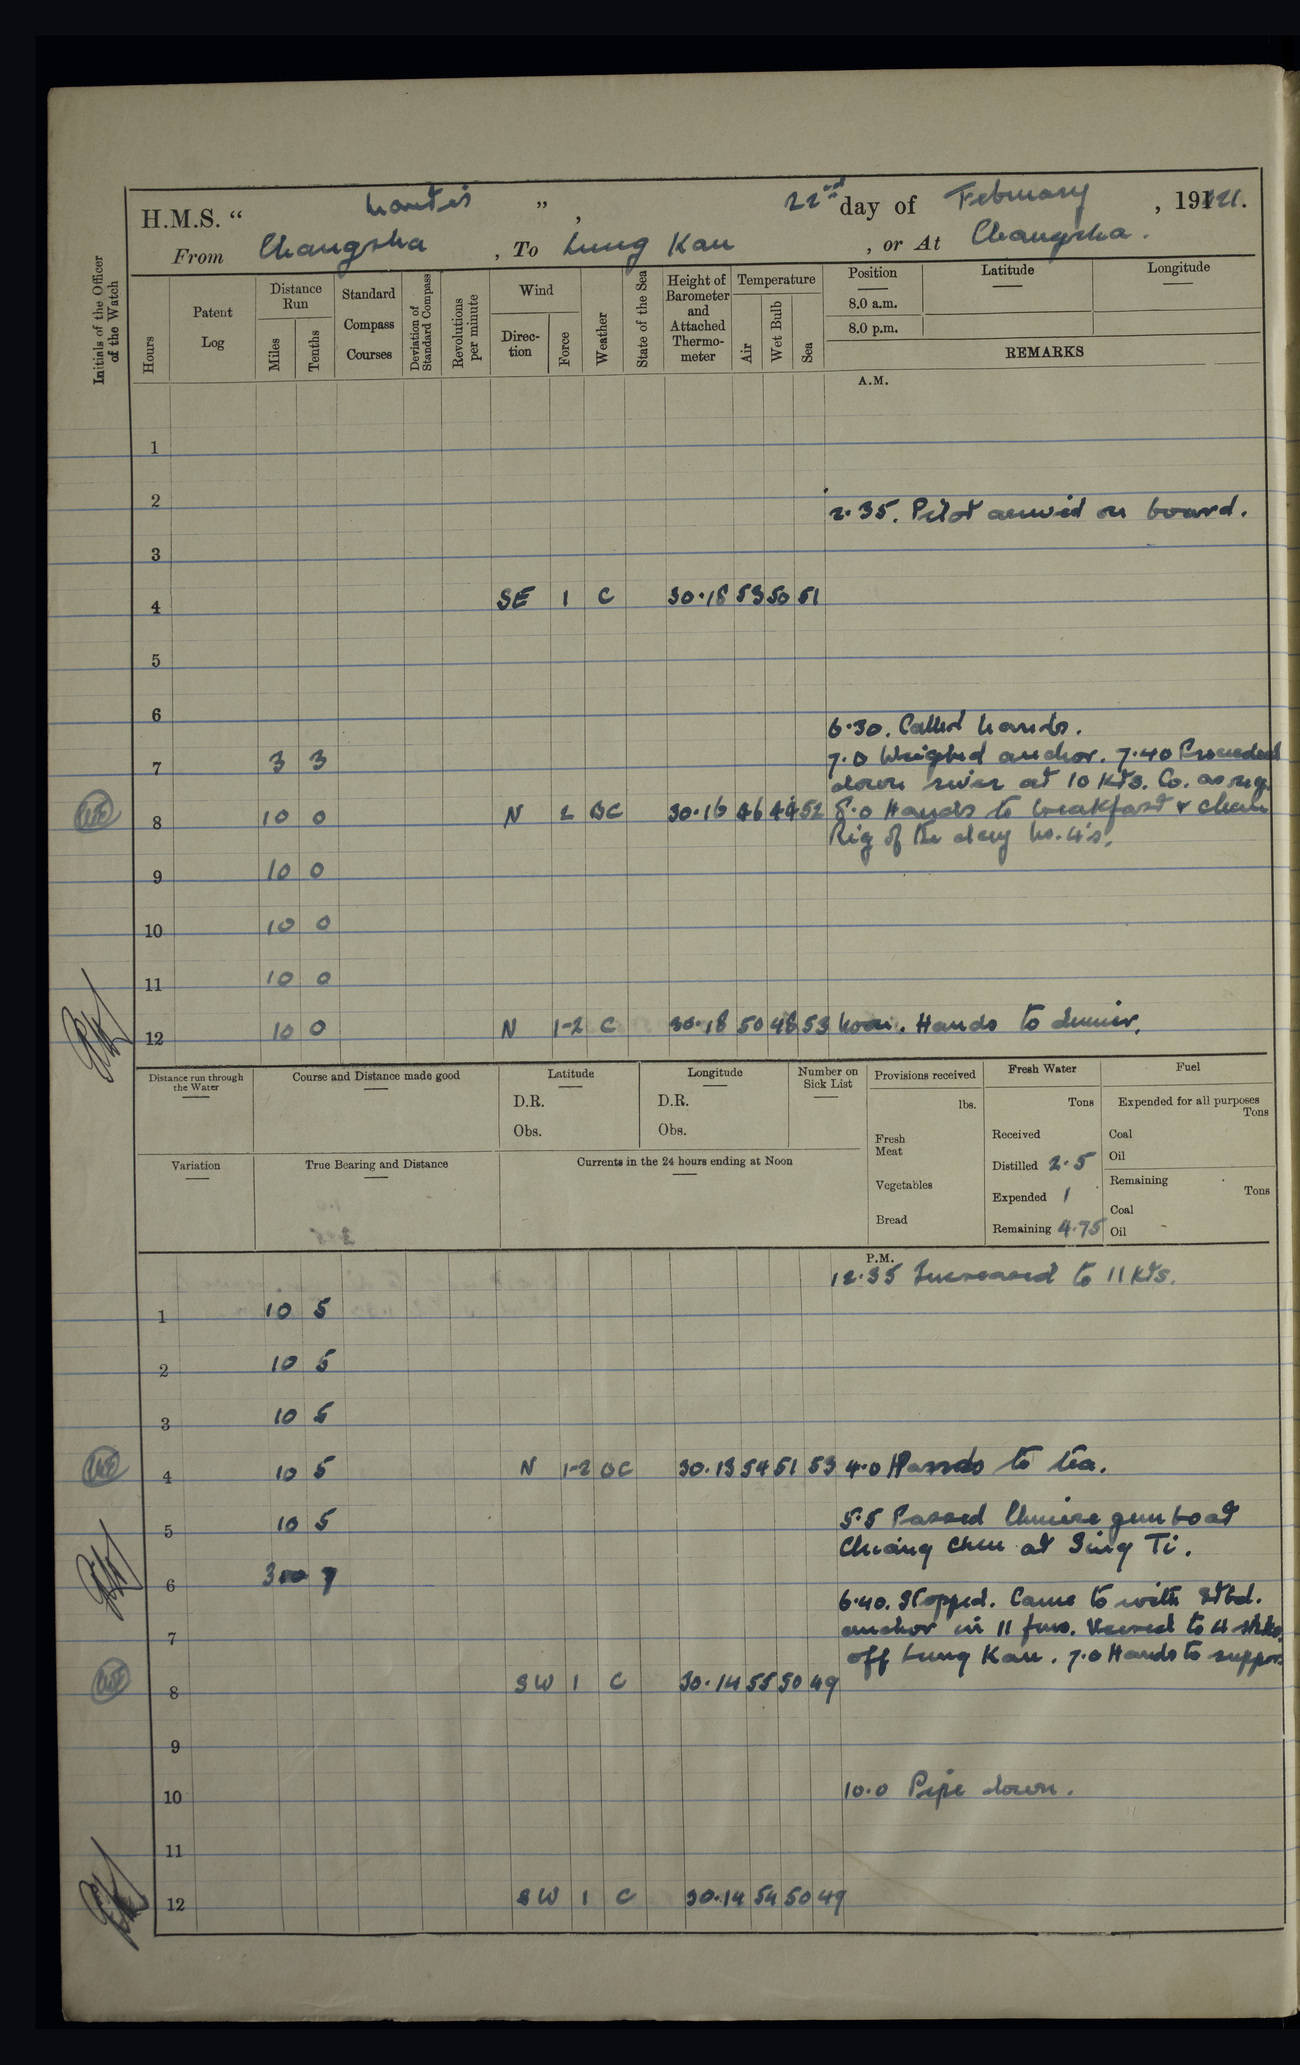 H.M.S. “ Mantis ” , 22nd day of February , 1921.
From Changsha , To Lung Kau , or At Changsha .
Initials of the Officer of the Watch
Hours
Patent Log
Distance Run
Miles
Tenths
Standard Compass Courses
Deviation of Standard Compass
Revolutions per minute
Wind
Direc-tion
Force
Weather
State of the Sea
Height of Barometer and Attached Thermo-meter
Temperature
Air
Wet Bulb
Sea
Position Latitude Longitude
8.0 a.m.
8.0 p.m.
REMARKS
A.M.
1
2
2.35. Pilot arrived on board.
3
4 SE 1 C 30.18 53 50 51
5
6
6.30. Called hands.
7 3 3 7.0 Weighed anchor. 7.40 Proceeded
down river at 10 Kts. Co. as req.
8 10 0 N 2 BC 30.16 46 44 52 8.0 Hands to breakfast & clean
Rig of the day No. 4's.
9 10 0
10 10 0
11 10 0
12 10 0 N 1-2 C 30.18 50 48 53 Noon. Hands to dinner.
Distance run through the Water
Course and Distance made good
Latitude
D.R.
Obs.
Longitude
D.R.
Obs.
Number on Sick List
Provisions received
lbs.
Fresh Meat
Vegetables
Bread
Fresh Water
Tons
Received
Distilled 2.5
Expended 1
Remaining 4.75
Fuel
Expended for all purposes
Tons
Coal
Oil
Remaining
Tons
Coal
Oil
Variation
True Bearing and Distance
Currents in the 24 hours ending at Noon
P.M.
12.35 Increased to 11 Kts.
1 10 5
2 10 5
3 10 5
4 10 5 N 1-2 BC 30.13 54 51 53 4.0 Hands to tea.
5 10 5 5.5 Passed Chinese gunboat
Chiang Chen at Sing Ti.
6 3 7
6.40. Stopped. Came to with Stbd.
7 anchor in 11 fms. Veered to 4 shks.
off Lung Kau. 7.0 Hands to supper.
8 SW 1 C 30.14 55 50 49
9
10 10.0 Pipe down.
11
12 SW 1 C 30.14 54 50 49